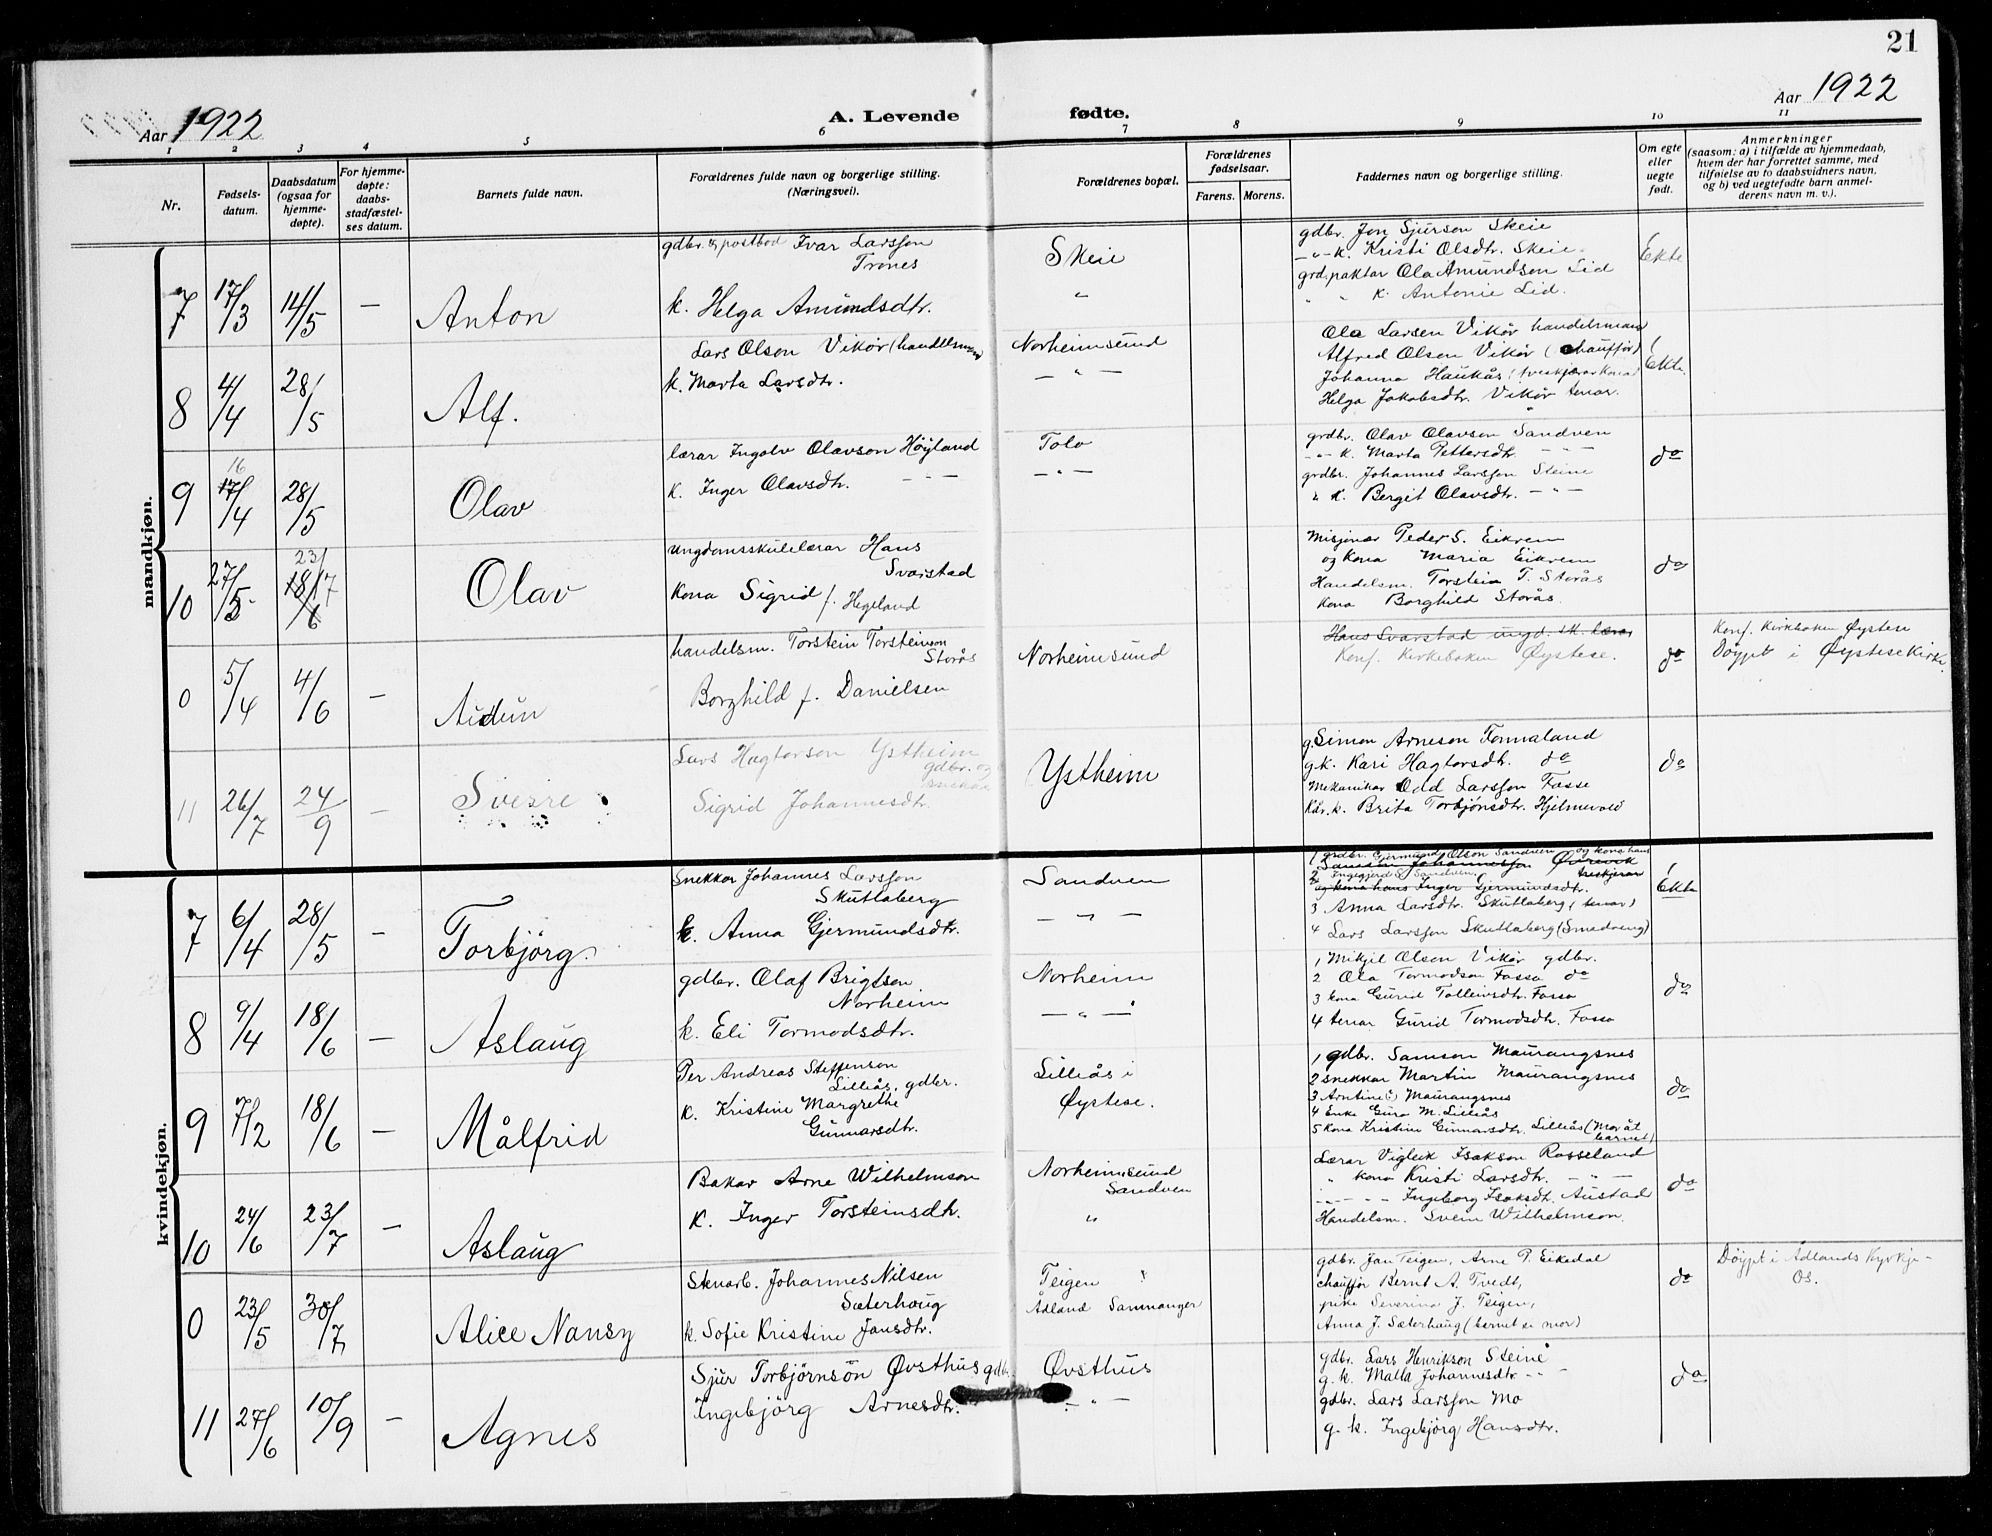 21
Aar 1922
A. Levende fødte.
Aar 1922
1 2 3 4 5 6 7 8 9 10 11
Nr.
Fødsels-
datum.
Daabsdatum
(ogsaa for
hjemme-
døpte).
For hjemme-
døpte:
daabs-
stadfæstel-
ses datum.
Barnets fulde navn.
Forældrenes fulde navn og borgerlige stilling.
(Næringsvei).
Forældrenes bopæl.
Forældrenes
fødselsaar.
Farens. Morens.
Faddernes navn og borgerlige stilling.
Om egte
eller
uegte
født.
Anmerkninger
(saasom: a) i tilfælde av hjemmedaab,
hvem der har forrettet samme, med
tilføielse av to daabsvidners navn,
og b) ved uegtefødte barn anmel-
derens navn m. v.).
mandkjøn.
7 17/3 14/5 — Anton
gdbr. og postbod Ivar Larsson
Trones
k. Helga Amundsdtr.
Skeie
"
gdbr. Jon Sjurson Skeie
-"- k. Kristi Olsdtr. Skeie
grd.paktar Ola Amundson Lid
" " k. Antonie Lid.
Ekte
8 4/4 28/5 Alf.
Lars Olson Vikør (handelsmann)
k. Marta Larsdtr.
Norheimsund
— " —
Ola Larsen Vikør handelsmann
Alfred Olson Vikør (chauffør)
Johanna Haukås
Helga Jakobsdtr. Vikør tenar.
Ekte.
9 16 17/4 28/5 Olav
lærar Ingolv Olavson Höyland
k. Inger Olavsdtr. — " —
Tolo
— " —
grdbr. Olav Olavson Sandven
-"- k. Marta Pettersdtr. — " —
grdbr. Johannes Larsson Steine
" k. Bergit Olavsdtr. — " —
do
10 27/5 23/7 18/6 Olav
ungdomsskulelærar Hans
Svarstad
kona Sigrid f. Hegeland
Misjonær Peder S. Eikrem
og kona Maria Eikrem
Handelsm. Torstein T. Storås
kona Borghild Storås.
do
0 5/4 4/6 — Audun
handelsm. Torstein Torsteinson
Storås
Borghild f. Danielsen
Norheimsund
Hans Svarstad ungd. sk. lærar
Konf. Kirkeboken Øystese.
do
Konf. Kirkeboken Øystese
Döypt i Øystese Kirke.
11 26/7 24/9 — Sverre
Lars Hagtorson Ystheim
gdbr. og
snekkar
Sigrid Johannesdtr.
Ystheim
g. Simon Arneson Tonnaland
g.k. Kari Hagtorsdtr. do
Mekanikar Odd Larsson Fosse
k. Brita Torbjönsdtr. Hjelmevold
do
kvindekjøn.
7 6/4 28/5 — Torbjörg.
Snekkar Johannes Larsson
Skutlaberg
k. Anna Gjermundsdtr.
Sandven
— " —
1 grdbr. Gjermund Olson Sandven og kona hans
Samson Johannesson Øvrevik
2 Ingegjerd S. Sandven. treskjerar
og kona hans Inger Gjermundsdtr.
3 Anna Larsdtr. Skutlaberg (tenar)
4 Lars Larsson Skutlaberg (Smedsveng)
Ekte
8 9/4 18/6 — Aslaug
gdbr. Olaf Brigtson
Norheim
k. Eli Tormodsdtr.
Norheim
— " —
1 Mikjel Olson Vikør gdbr.
2 Ola Tormodson Fosso do
3 kona Gurid Tolleivsdtr. Fosso
4 tenar Gurid Tormodsdtr. Fosso
do
9 7/2 18/6 — Målfrid
Per Andreas Steffenson
Lilleås, gdbr.
k. Kristine Margrethe
Gunnarsdtr.
Lilleås i
Øystese.
1 gdbr. Samson Maurangsnes
2 snekkar Martin Maurangsnes
3 Arntine(?) Maurangsnes
4 Enke Guro M. Lilleås
5 Kona Kristine Gunnarsdtr. Lilleås (Mor åt
barnet)
do
10 24/6 23/7 — Aslaug
Bakar Arne Wilhelmson
k. Inger Torsteinsdtr.
Norheimsund
Sandven
"
Lærar Vigleik Isakson Rosseland
" kona Kristi Larsdtr. — " —
Ingeborg Isaksdtr. Austad
Handelsm. Svein Wilhelmson.
do
0 23/5 30/7 Alice Nansy
Stenarb. Johannes Nilsen
Sæterhaug
k. Sofie Kristine Jansdtr.
Teigen "
Ådland Samnanger
gdbr. Jan Teigen, Arne P. Eikedal
chauffør Bernt A. Tvedt,
pike Severina J. Teigen,
Anna J. Sæterhaug (barnet si mor)
do
Döypt i Ådlands Kyrkje
Os.
11 27/6 10/9 — Agnes
Sjur Torbjørnsön Øvsthus gdbr.
Ingebjörg Arnesdtr.
Øvsthus
— " —
gdbr. Lars Henrikson Steine
g. k. Malla Johannesdtr. - " -
gdbr. Lars Larsson Mo
g. k. Ingebjörg Hansdtr.
do